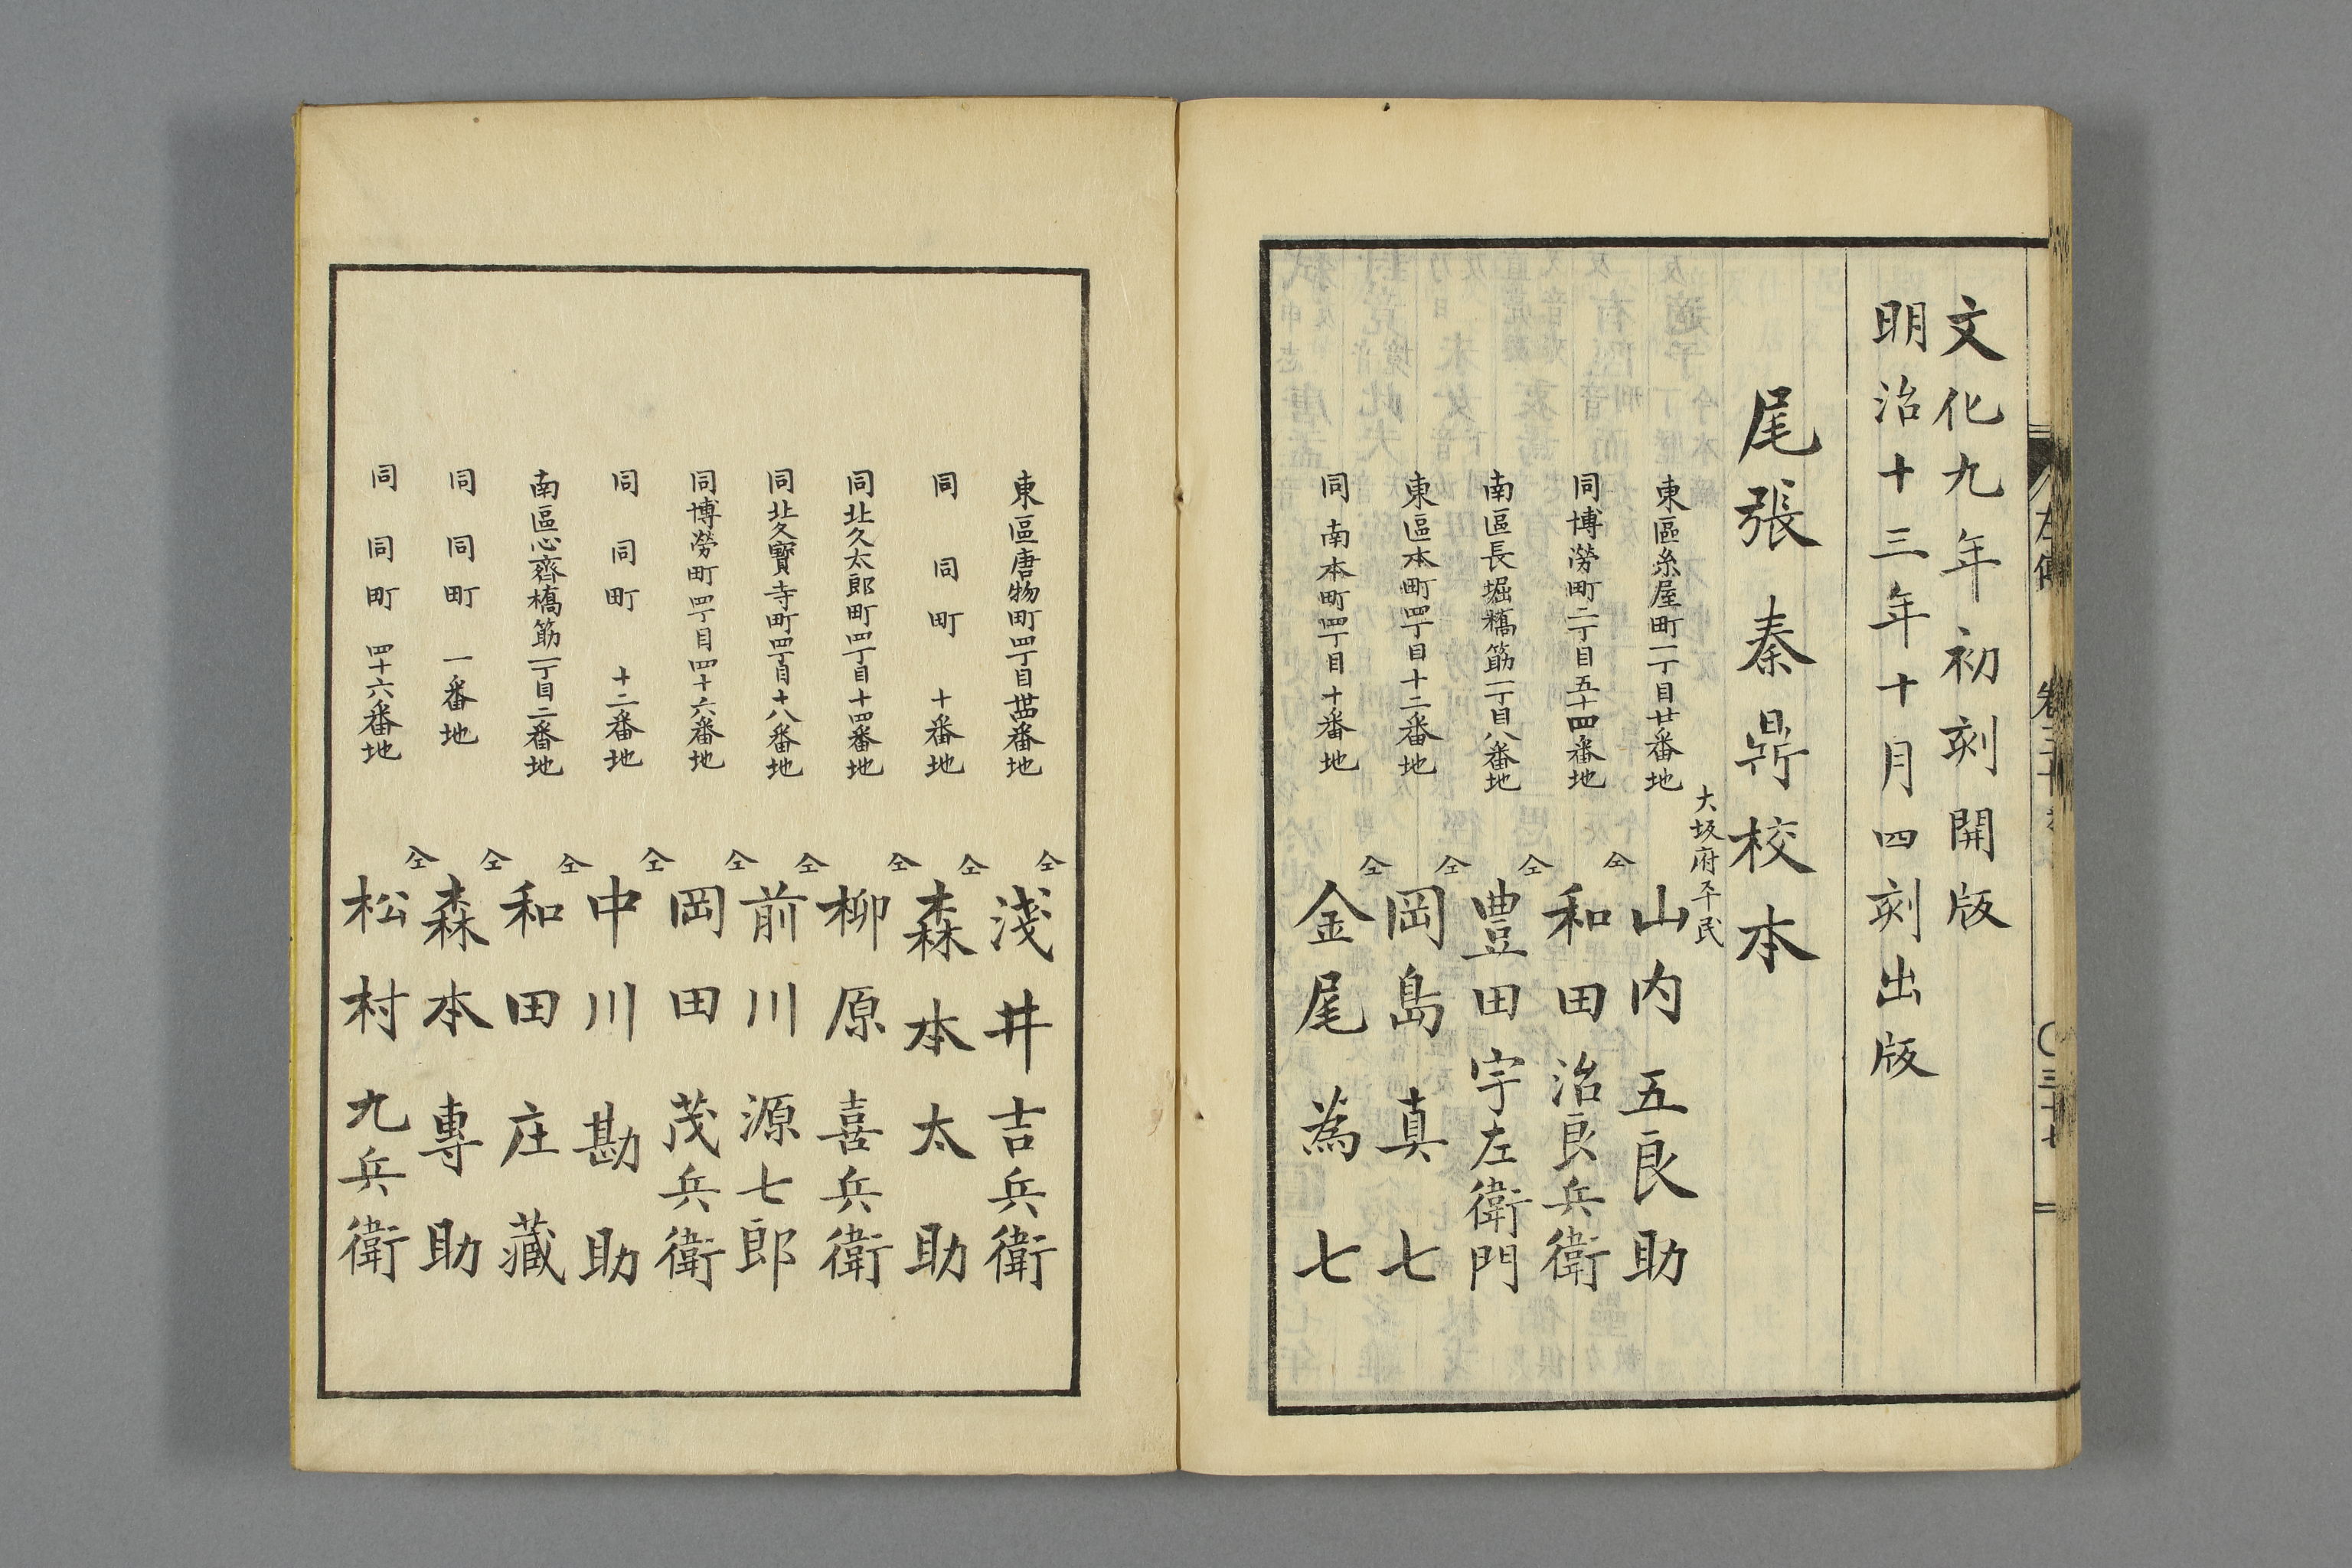 文化九年初刻開版
明治十三年十月四刻出版
尾張 秦鼎校本
大坂府平民
東區糸屋町一丁目廿番地 山内五良助
同博勞町二丁目五十四番地 仝 和田治良兵衛
南區長堀橋筋一丁目八番地 仝 豊田宇左衛門
東區本町四丁目十二番地 仝 岡島真七
同南本町四丁目十番地 仝 金尾為七
東區唐物町四丁目卋四番地 仝 淺井吉兵衛
同 同町 十番地 仝 森本太助
同北久太郎町四丁目十四番地 仝 柳原喜兵衛
同北久寶寺町四丁目十八番地 仝 前川源七郎
同博勞町四丁目四十六番地 仝 岡田茂兵衛
同 同町 十二番地 仝 中川勘助
南區心齊橋筋一丁目二番地 仝 和田庄藏
同 同町 一番地 仝 森本專助
同 同町 四十六番地 仝 松村九兵衛